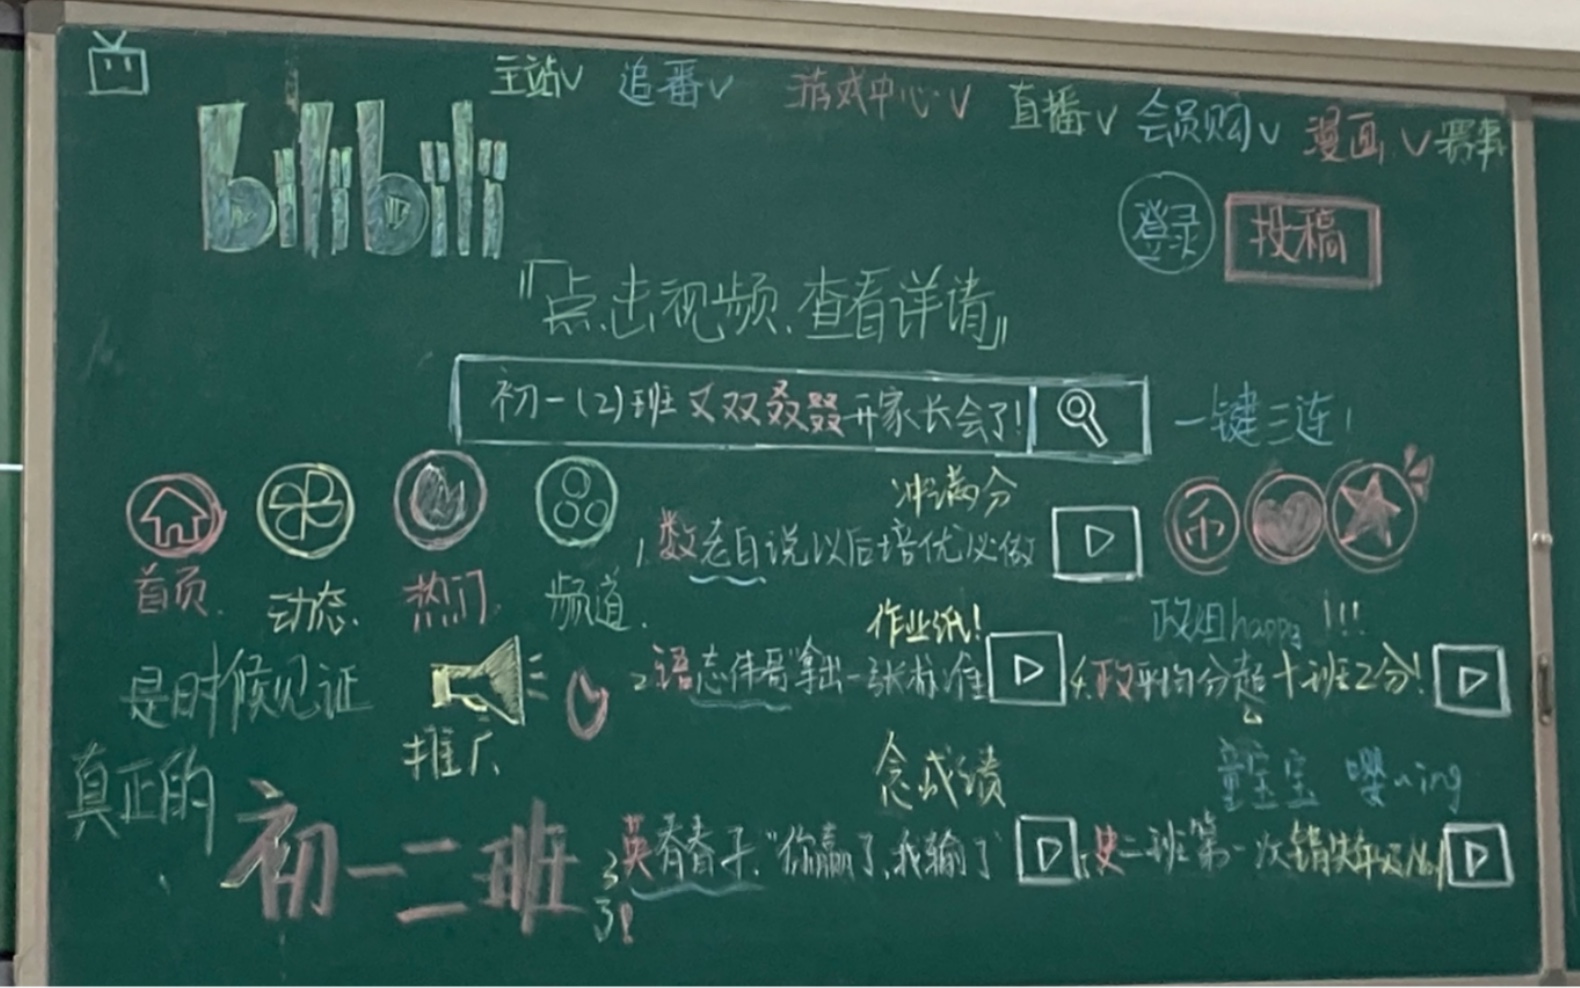 主站∨ 追番∨ 游戏中心∨ 直播∨ 会员购∨ 漫画∨ 赛事
bilibili
登录 投稿
『点击视频、查看详请』
初一(2)班又双叒叕开家长会了!
一键三连!
首页 动态 热门 频道
冲满分
1.数老自说以后培优必做
币
作业纸!
2.语志伟哥"拿出一张标准
政姐happy!!!
4.政平均分超十班2分!
是时候见证
推广
真正的
初一二班
念成绩
3英春春子:"你赢了,我输了
童宝宝 嘤~ing
5.史二班第一次错失年级No.1
了!